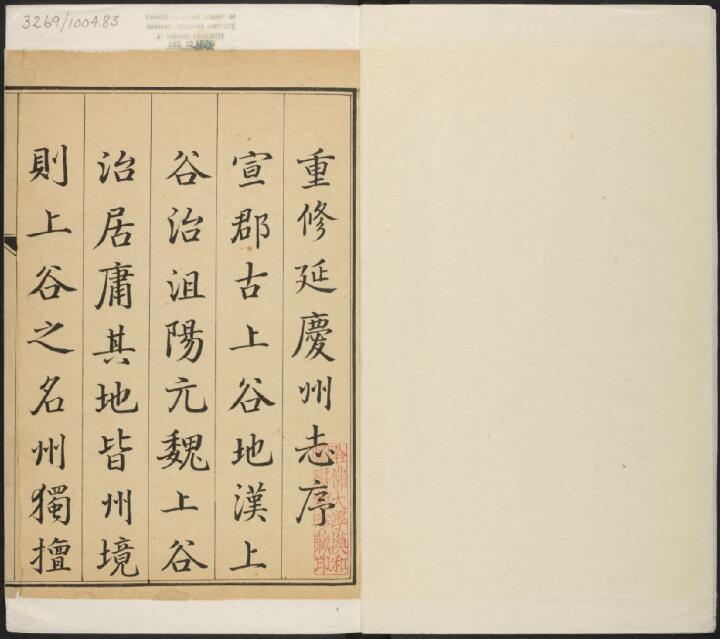 3269/1004.83
CHINESE-JAPANESE LIBRARY OF
HARVARD-YENCHING INSTITUTE
AT HARVARD UNIVERSITY
DEC 12
重修延慶州志序
宣郡古上谷地漢上
谷治沮陽元魏上谷
治居庸其地皆州境
則上谷之名州獨擅
哈佛大學漢和
圖書館珍藏印